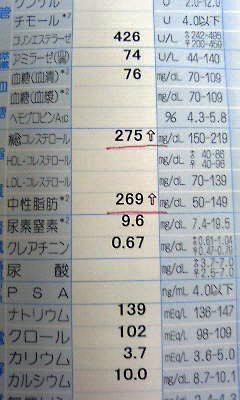 クンケル U 2.0-12.0
チモール*7 U 4.0以下
コリンエステラーゼ 426 U/L ♂242-495 ♀200-459
アミラーゼ(血清) 74 U/L 44-140
血糖(血清)*2 76 mg/dL 70-109
血糖(血漿)*2 mg/dL 70-109
ヘモグロビンA1c % 4.3-5.8
総コレステロール 275↑ mg/dL 150-219
HDL-コレステロール mg/dL ♂40-86 ♀40-96
LDL-コレステロール mg/dL 70-139
中性脂肪*2 269↑ mg/dL 50-149
尿素窒素*2 9.6 mg/dL 7.4-19.5
クレアチニン 0.67 mg/dL ♂0.61-1.04 ♀0.47-0.79
尿酸 mg/dL ♂3.7-7.0 ♀2.5-7.0
PSA ng/mL 4.0以下
ナトリウム 139 mEq/L 136-147
クロール 102 mEq/L 98-109
カリウム 3.7 mEq/L 3.6-5.0
カルシウム 10.0 mg/dL 8.7-10.1